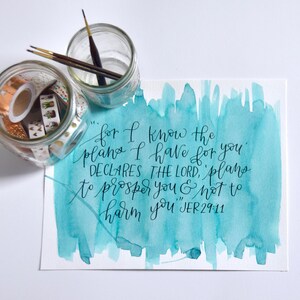 "for I know the
plans I have for you"
DECLARES THE LORD, "plans
to prosper you & not to
harm you." JER 29:11